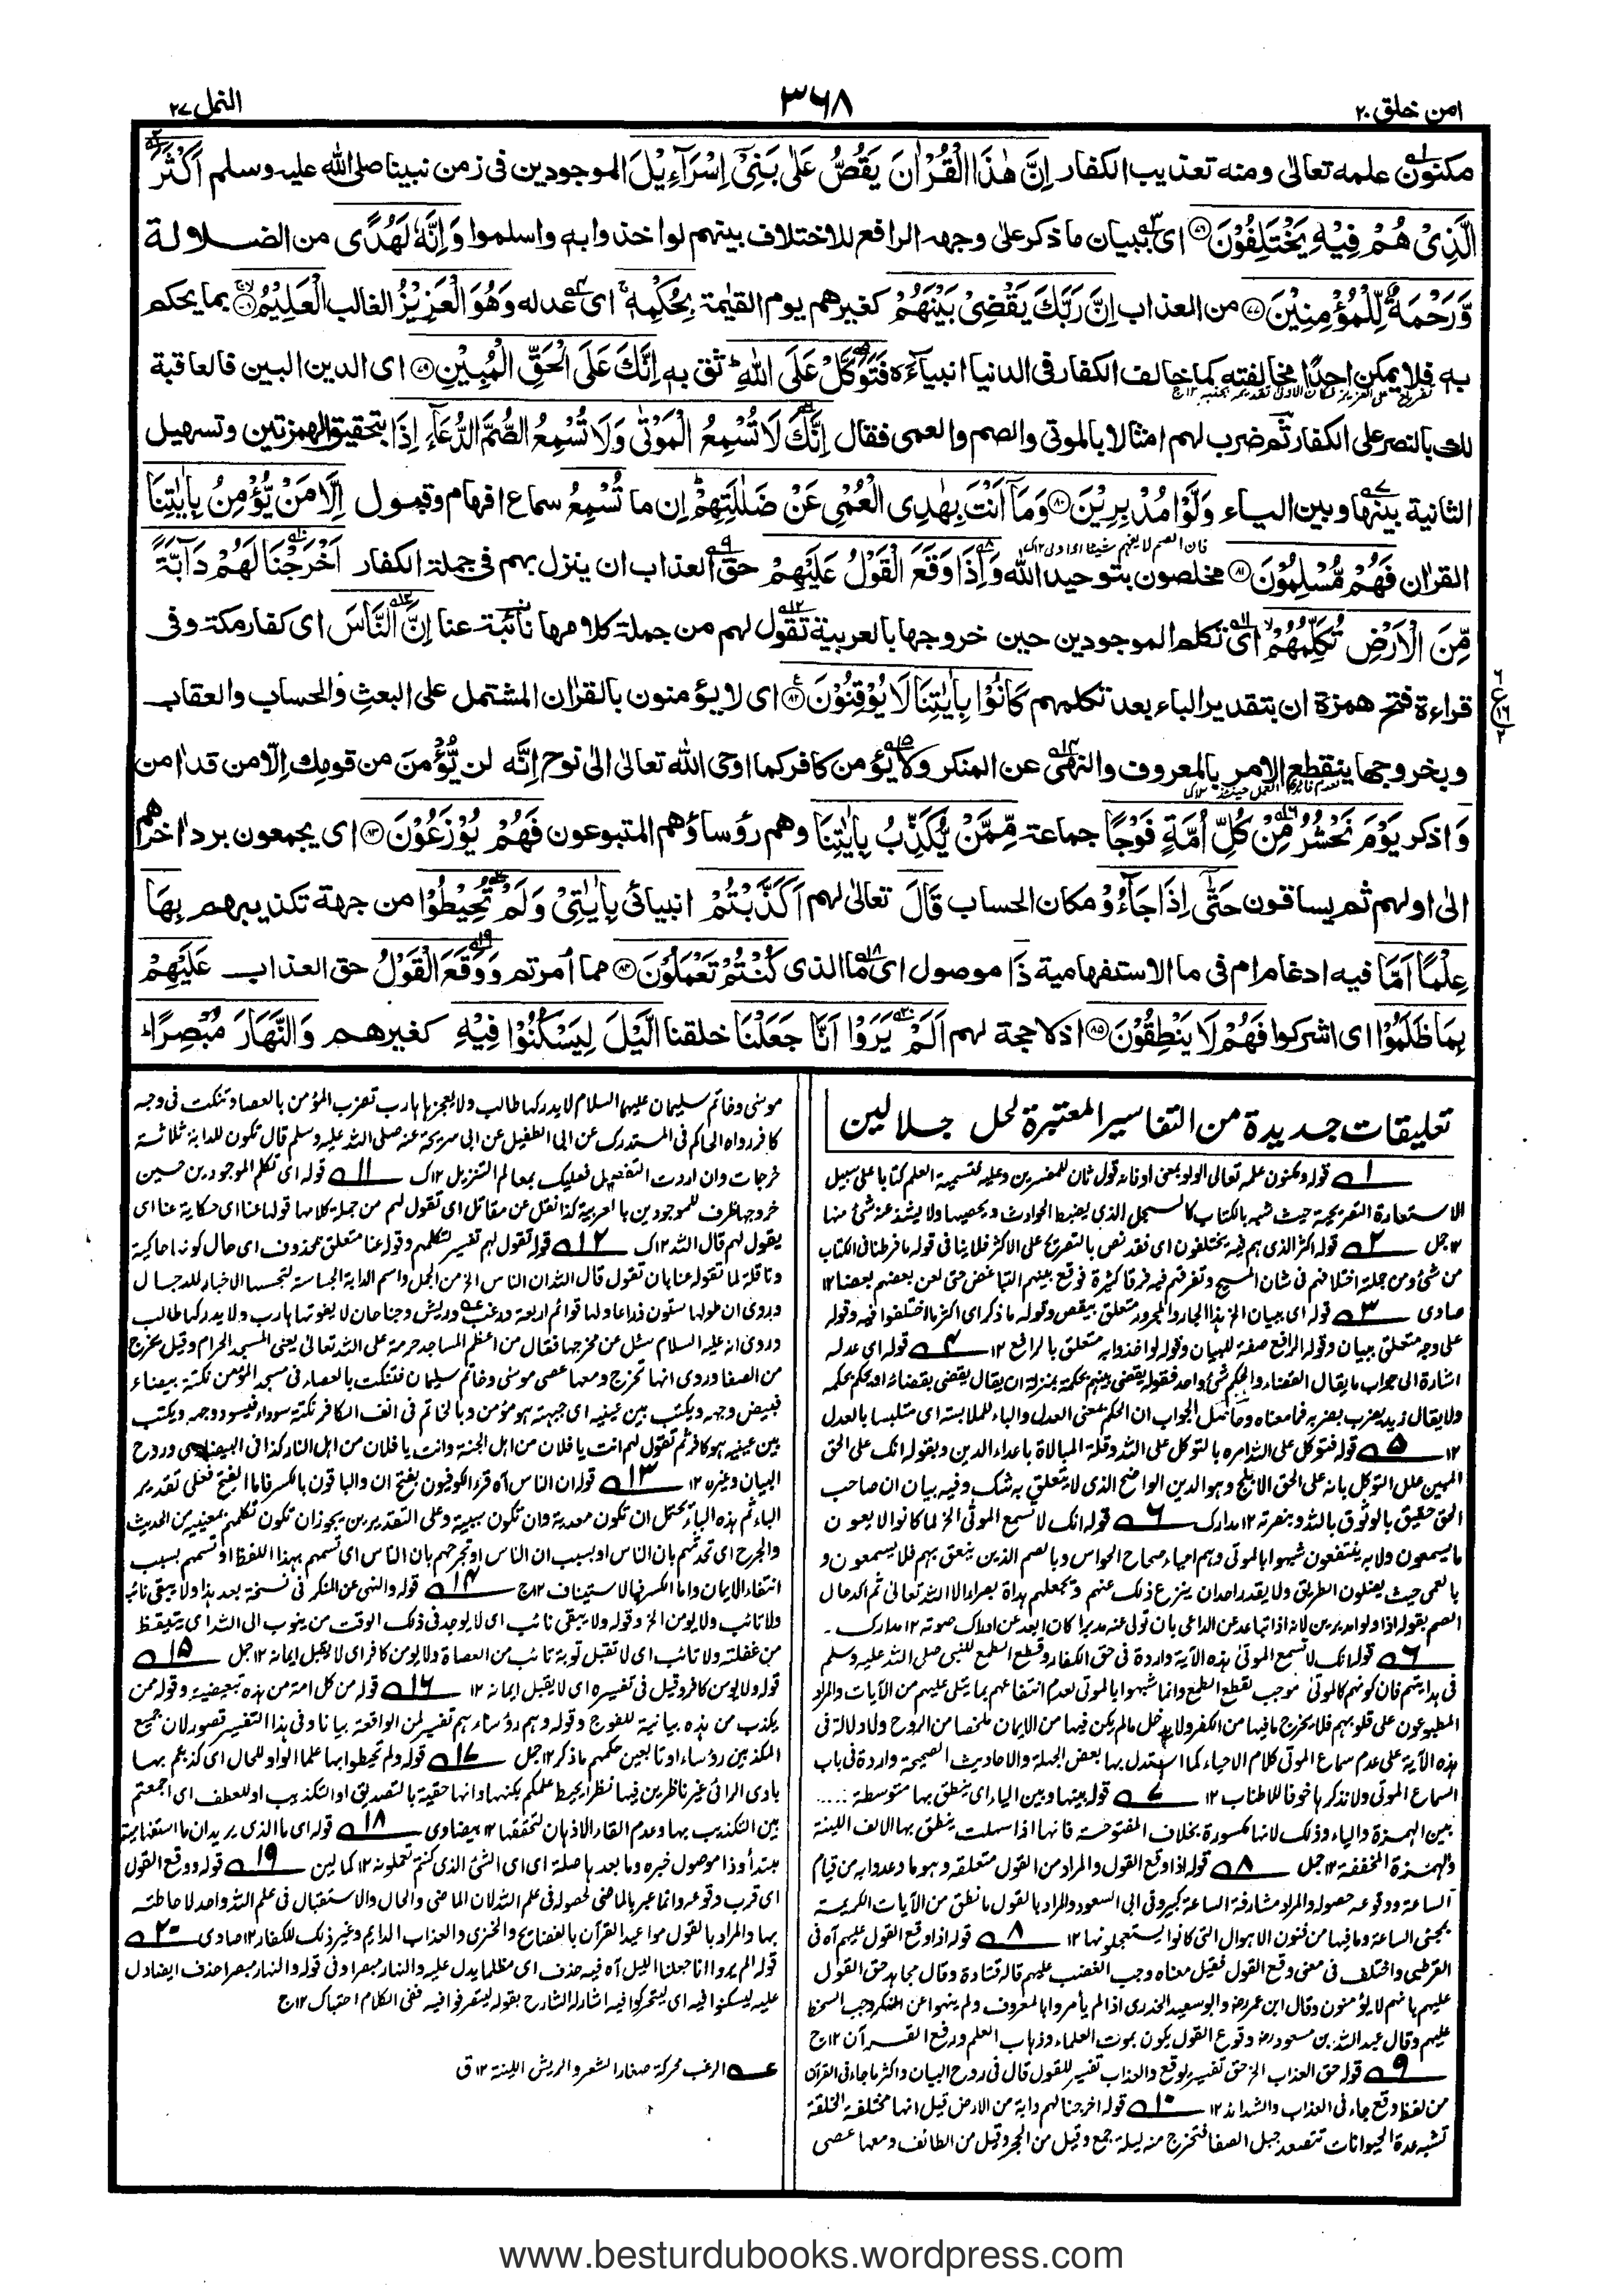 امن خلق ٢٠
٣٦٨
النمل ٢٧
مكنون علمه تعالى ومنه تعذيب الكفار اِنَّ هٰذَا الْقُرْاٰنَ يَقُصُّ عَلٰى بَنِيْٓ اِسْرَآءِيْلَ الموجودين فى زمن نبينا صلى الله عليه وسلم اَكْثَرَ
الَّذِيْ هُمْ فِيْهِ يَخْتَلِفُوْنَ ٧٦ اى ببيان ما ذكر على وجهه الرافع للاختلاف بينهم لو اخذوا به واسلموا وَاِنَّهٗ لَهُدًى من الضلالة
وَّرَحْمَةٌ لِّلْمُؤْمِنِيْنَ ٧٧ من العذاب اِنَّ رَبَّكَ يَقْضِيْ بَيْنَهُمْ كغيرهم يوم القيٰمة بِحُكْمِهٖ ۚ اى عدله وَهُوَ الْعَزِيْزُ الغالب الْعَلِيْمُ ٧٨ بما يحكم
به فلا يمكن احدًا مخالفته كما خالف الكفار فى الدنيا انبياءه فَتَوَكَّلْ عَلَى اللّٰهِ ؕ ثق به اِنَّكَ عَلَى الْحَقِّ الْمُبِيْنِ ٧٩ اى الدين البين فالعاقبة
لك بالنصر على الكفار ثم ضرب لهم امثالا بالموتى والصم والعمى فقال اِنَّكَ لَا تُسْمِعُ الْمَوْتٰى وَلَا تُسْمِعُ الصُّمَّ الدُّعَآءَ اِذَا بتحقيق الهمزتين وتسهيل
الثانية بينها وبين الياء وَلَّوْا مُدْبِرِيْنَ ٨٠ وَمَآ اَنْتَ بِهٰدِى الْعُمْيِ عَنْ ضَلٰلَتِهِمْ ؕ اِن ما تُسْمِعُ سماع افهام وقبول اِلَّا مَنْ يُّؤْمِنُ بِاٰيٰتِنَا
القراٰن فَهُمْ مُّسْلِمُوْنَ ٨١ مخلصون بتوحيد الله وَاِذَا وَقَعَ الْقَوْلُ عَلَيْهِمْ حق العذاب ان ينزل بهم فى جملة الكفار اَخْرَجْنَا لَهُمْ دَآبَّةً
مِّنَ الْاَرْضِ تُكَلِّمُهُمْ ۙ اى تكلم الموجودين حين خروجها بالعربية تقول لهم من جملة كلامها نائبة عنا اِنَّ النَّاسَ اى كفار مكة وفى
قراءة فتح همزة ان بتقدير الباء بعد تكلمهم كَانُوْا بِاٰيٰتِنَا لَا يُوْقِنُوْنَ ٨٢ اى لا يؤمنون بالقراٰن المشتمل على البعث والحساب والعقاب
وبخروجها ينقطع الامر بالمعروف والنهى عن المنكر ولا يؤمن كافر كما اوحى الله تعالى الى نوح اِنَّه لن يُّؤْمِنَ من قومك اِلّا من قد اٰمن
وَ اذكر يَوْمَ نَحْشُرُ مِنْ كُلِّ اُمَّةٍ فَوْجًا جماعة مِّمَّنْ يُّكَذِّبُ بِاٰيٰتِنَا وهم رؤساؤهم المتبوعون فَهُمْ يُوْزَعُوْنَ ٨٣ اى يجمعون برد اٰخرهم
الى اولهم ثم يساقون حَتّٰٓى اِذَا جَآءُوْ مكان الحساب قَالَ تعالى لهم اَكَذَّبْتُمْ انبيائى بِاٰيٰتِيْ وَلَمْ تُحِيْطُوْا من جهة تكذيبهم بِهَا
عِلْمًا اَمَّا فيه ادغام ام فى ما الاستفهامية ذَا موصول اى ما الذى كُنْتُمْ تَعْمَلُوْنَ ٨٤ مما اُمرتم وَوَقَعَ الْقَوْلُ حق العذاب عَلَيْهِمْ
بِمَا ظَلَمُوْا اى اشركوا فَهُمْ لَا يَنْطِقُوْنَ ٨٥ اذ لا حجة لهم اَلَمْ يَرَوْا اَنَّا جَعَلْنَا خلقنا الَّيْلَ لِيَسْكُنُوْا فِيْهِ كغيرهم وَالنَّهَارَ مُبْصِرًا ؕ
تعليقات جديدة من التفاسير المعتبرة لحل جلالين
الاستعارة التصريحية حيث شبه بالكتاب كالسجل الذى يضبط الحوادث ويحصيها ولا يشذ عنه شئ منها
١٢ جمل ٢ قوله اكثر الذى هم فيه يختلفون اى فقد نص بالتصريح على الاكثر فلا ينافى قوله ما فرطنا فى الكتاب
من شئ ومن جملة اختلافهم فى شان المسيح وتفرقهم فيه فرقا كثيرة فوقع بينهم التباغض حتى لعن بعضهم بعضا ١٢
صاوى ٣ قوله اى ببيان الخ هذا الجار والمجرور متعلق بيقص وقوله ما ذكر اى اكثر ما اختلفوا فيه وقوله
على وجهه متعلق ببيان وقوله الرافع صفة للبيان وقوله لو اخذوا به متعلق بالرافع ١٢ ٤ قوله اى عدله
اشارة الى جواب ما يقال القضاء والحكم شئ واحد فقوله يقضى بينهم بحكمه بمنزلة ان يقال يقضى بقضائه او يحكم بحكمه
ولا يقال زيد يضرب بضربه فما معناه وحاصل الجواب ان الحكم بمعنى العدل والباء للملابسة اى متلبسا بالعدل
١٢ ٥ قوله فتوكل على الله امره بالتوكل على الله وقلة المبالاة باعداء الدين وبقوله انك على الحق
المبين علل التوكل بانه على الحق الابلج وهو الدين الواضح الذى لا يتعلق به شك وفيه بيان ان صاحب
الحق حقيق بالوثوق بالله وبنصرته ١٢ مدارك ٦ قوله انك لا تسمع الموتى الخ لما كانوا لا يعون
ما يسمعون ولا به ينتفعون شبهوا بالموتى وهم احياء صحاح الحواس وبالصم الذين ينعق بهم فلا يسمعون و
بالعمى حيث يضلون الطريق ولا يقدر احد ان ينزع ذلك عنهم ويجعلهم هداة بصراء الا الله تعالى ثم اكد حال
الصم بقوله اذا ولوا مدبرين لانه اذا تباعد عن الداعى بان تولى عنه مدبرا كان ابعد عن ادراك صوته ١٢ مدارك ۔
٦ قوله انك لا تسمع الموتى هذه الآية واردة فى حق الكفار وقطع الطمع للنبى صلى الله عليه وسلم
فى هدايتهم فان كونهم كالموتى موجب لقطع الطمع وانما شبهوا بالموتى لعدم انتفاعهم بما يتلى عليهم من الآيات والمراد
المطبوعون على قلوبهم فلا يخرج ما فيها من الكفر ولا يدخل مالم يكن فيها من الايمان ملخصا من الروح ولا دلالة فى
هذه الآية على عدم سماع الموتى كلام الاحياء كما استدل بها بعض الجهلة والاحاديث الصحيحة واردة فى باب
السماع الموتى ولا نذكرها خوفا للاطناب ١٢ ٧ قوله بينها وبين الياء اى ينطق بها متوسطة
بين الهمزة والياء وذلك لانها مكسورة بخلاف المفتوحة فانها اذا سهلت ينطق بها الالف اللينة
والهمزة المخففة ١٢ جمل ٨ قوله اذا وقع القول والمراد من القول متعلقه وهو ما وعدوا به من قيام
الساعة ووقوعه حصوله والمراد مشارفة الساعة كبير وفى ابى السعود والمراد بالقول ما نطق من الآيات الكريمة
بمجئ الساعة وما فيها من فنون الاهوال التى كانوا يستعجلونها ١٢ ٨ قوله اذا وقع القول عليهم آه فى
القرطبى واختلف فى معنى وقع القول فقيل معناه وجب الغضب عليهم قاله قتادة وقال مجاهد حق القول
عليهم بانهم لا يؤمنون وقال ابن عمر رض وابو سعيد الخدرى اذا لم يأمروا بالمعروف ولم ينهوا عن المنكر وجب السخط
عليهم وقال عبد الله بن مسعود رض وقوع القول يكون بموت العلماء وذهاب العلم ورفع القرآن ١٢ ج
٩ قوله حق العذاب الخ حق تفسير لوقع والعذاب تفسير للقول قال فى روح البيان واكثر ما جاء فى القرآن
من لفظ وقع جاء فى العذاب والشدائد ١٢ ١٠ قوله اخرجنا لهم دابة من الارض قيل انها مختلفة الخلقة
تشبه عدة الحيوانات تتصدع جبل الصفا فتخرج منه ليلة جمع وقيل من الحجر وقيل من الطائف ومعها عصى
موسى وخاتم سليمان عليهما السلام لا يدركها طالب ولا يعجزها هارب تضرب المؤمن بالعصا وتنكت فى وجه
كافر رواه الحاكم فى المستدرك عن ابى الطفيل عن ابى سريحة عنه صلى الله عليه وسلم قال تكون للدابة ثلاثة
خرجات وان اردت التفصيل فعليك بمعالم التنزيل ١٢ ك ١١ قوله اى تكلم الموجودين حين
خروجها ظرف للموجودين بالعربية كذا نقل عن مقاتل اى تقول لهم من جملة كلامها قولها عنا اى حكاية عنا اى
يقول لهم قال الله ١٢ ك ١٢ قوله تقول لهم تفسير لتكلمهم وقوله عنا متعلق بمحذوف اى حال كونها حاكية
وناقلة لما تقوله عنا بان تقول قال الله ان الناس الخ من الجمل واسم الدابة الجساسة لتجسسها الاخبار للدجال
وروى ان طولها ستون ذراعا ولها قوائم اربعة وزغب وريش وجناحان لا يفوتها هارب ولا يدركها طالب
وروى انه عليه السلام سئل عن مخرجها فقال من اعظم المساجد حرمة على الله تعالى يعنى المسجد الحرام وقيل تخرج
من الصفا وروى انها تخرج ومعها عصى موسى وخاتم سليمان فتنكت بالعصاء فى مسجد المؤمن نكتة بيضاء
فيبيض وجهه ويكتب بين عينيه اى جبهته هو مؤمن وبالخاتم فى انف الكافر نكتة سوداء فيسود وجهه ويكتب
بين عينيه هو كافر ثم تقول لهم انت يا فلان من اهل الجنة وانت يا فلان من اهل النار كذا فى البيضاوى وروح
البيان وغيره ١٢ ١٣ قوله ان الناس آه قرء الكوفيون بفتح ان والباقون بالكسر فاما الفتح فعلى تقدير
الباء ثم هذه الباء يحتمل ان تكون معدية وان تكون سببية وعلى التقديرين يجوز ان تكون تكلمهم بمعنييه من الحديث
والجرح اى تحدثهم بان الناس او بسبب ان الناس او تجرحهم بان الناس اى تسمهم بهذا اللفظ او تسمهم بسبب
انتفاء الايمان واما الكسر فبالاستيناف ١٢ ج ١٤ قوله والنهى عن المنكر فى نسخة بعد هذا ولا يبقى نائب
ولا تائب ولا يؤمن الخ وقوله ولا يبقى نائب اى لا يوجد فى ذلك الوقت من ينوب الى الله اى يتيقظ
من غفلته ولا تائب اى لا تقبل توبة تائب من العصاة ولا يؤمن كافر اى لا يقبل ايمانه ١٢ جمل ١٥
قوله ولا يؤمن كافر وقيل فى تفسيره اى لا يقبل ايمانه ١٢ ١٦ قوله من كل امة من هذه تبعيضية وقوله ممن
يكذب من هذه بيانية للفوج وقوله وهم رؤساءهم تفسير لمن الواقعة بيانا وفى هذا التفسير قصور لان جميع
المكذبين رؤساء او تابعين حكمهم ما ذكر ١٢ جمل ١٧ قوله ولم تحيطوا بها علما الواو للحال اى كذبتم بها
بادى الراى غير ناظرين فيها نظرا يحيط علمكم بكنهها وانها حقيقة بالتصديق او التكذيب او للعطف اى اجمعتم
بين التكذيب بها وعدم القاء الاذهان لتحققها ١٢ بيضاوى ١٨ قوله اى ما الذى يريد ان ما استفهامية
مبتدأ وذا موصول خبره وما بعدها صلة اى اى الشئ الذى كنتم تعملونه ١٢ كمالين ١٩ قوله ووقع القول
اى قرب وقوعه وانما عبر بالماضى لحصوله فى علم الله لان الماضى والحال والاستقبال فى علم الله واحد لاحاطته
بها والمراد بالقول مواعيد القرآن بالفضايح والخزى والعذاب الدايم وغير ذلك للكفار ١٢ صاوى ٢٠
قوله الم يروا انا جعلنا الليل آه فيه حذف اى مظلما يدل عليه والنهار مبصرا وفى قوله والنهار مبصرا حذف ايضا دل
عليه ليسكنوا فيه اى ليتحركوا فيه اشار له الشارح بقوله ليتصرفوا فيه ففى الكلام احتباك ١٢ ج
عه الزغب محركة صغار الشعر والريش اللينة ١٢ ق
www.besturdubooks.wordpress.com